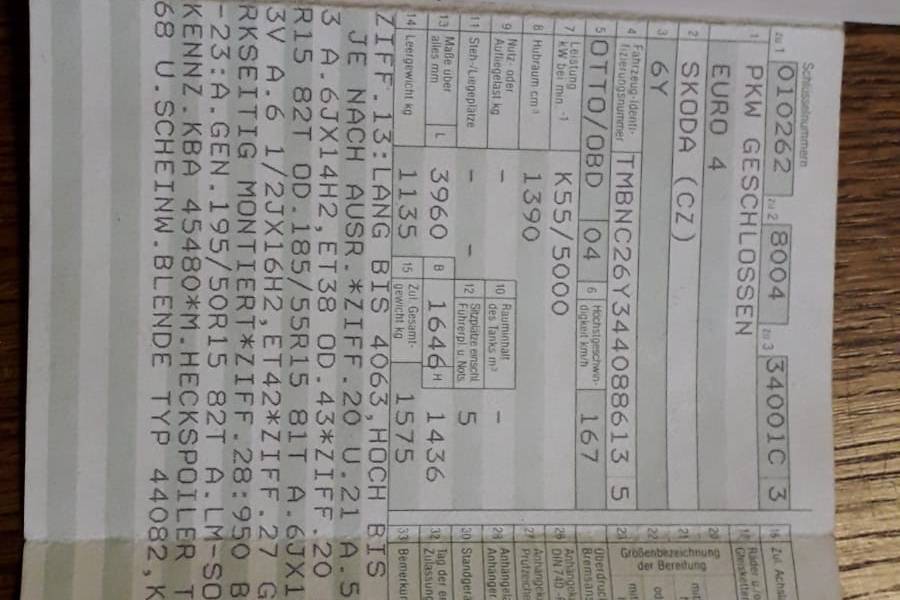 Schlüsselnummern
zu 1 010262 zu 2 8004 zu 3 34001C 3
1 PKW GESCHLOSSEN
EURO 4
2 SKODA (CZ)
3 6Y
4 Fahrzeug-Identi-
fizierungsnummer TMBNC26Y344088613 5
5 OTTO/OBD 04 6 Höchstgeschwin-
digkeit km/h 167
7 Leistung
kW bei min -1 K55/5000
8 Hubraum cm³ 1390
9 Nutz- oder
Aufliegelast kg – 10 Rauminhalt
des Tanks m³ –
11 Steh-/Liegeplätze – – 12 Sitzplätze einschl.
Führerpl. u. Nots. 5
13 Maße über
alles mm L 3960 B 1646 H 1436
14 Leergewicht kg 1135 15 Zul. Gesamt-
gewicht kg 1575
ZIFF.13:LANG BIS 4063,HOCH BIS
JE NACH AUSR.*ZIFF.20 U.21 A.5
3 A.6JX14H2,ET38 OD.43*ZIFF.20
R15 82T OD.185/55R15 81T A.6JX1
3V A.6 1/2JX16H2,ET42*ZIFF.27 G
RKSEITIG MONTIERT*ZIFF.28:950 B
-23:A.GEN.195/50R15 82T A.LM-SO
KENNZ.KBA 45480*M.HECKSPOILER T
68 U.SCHEINW.BLENDE TYP 44082,K
16 Zul. Achsla
Räder u
Gleisketten
20
21
22
23
Größenbezeichnung
der Bereifung
mit
od
mit
Überdruck
Bremsans
26 Anhängek
DIN 740
27 Anhängek
Prüfzeiche
28 Anhängela
29 Anhänger
30 Standgerä
32 Tag der er
Zulassung
33 Bemerkun